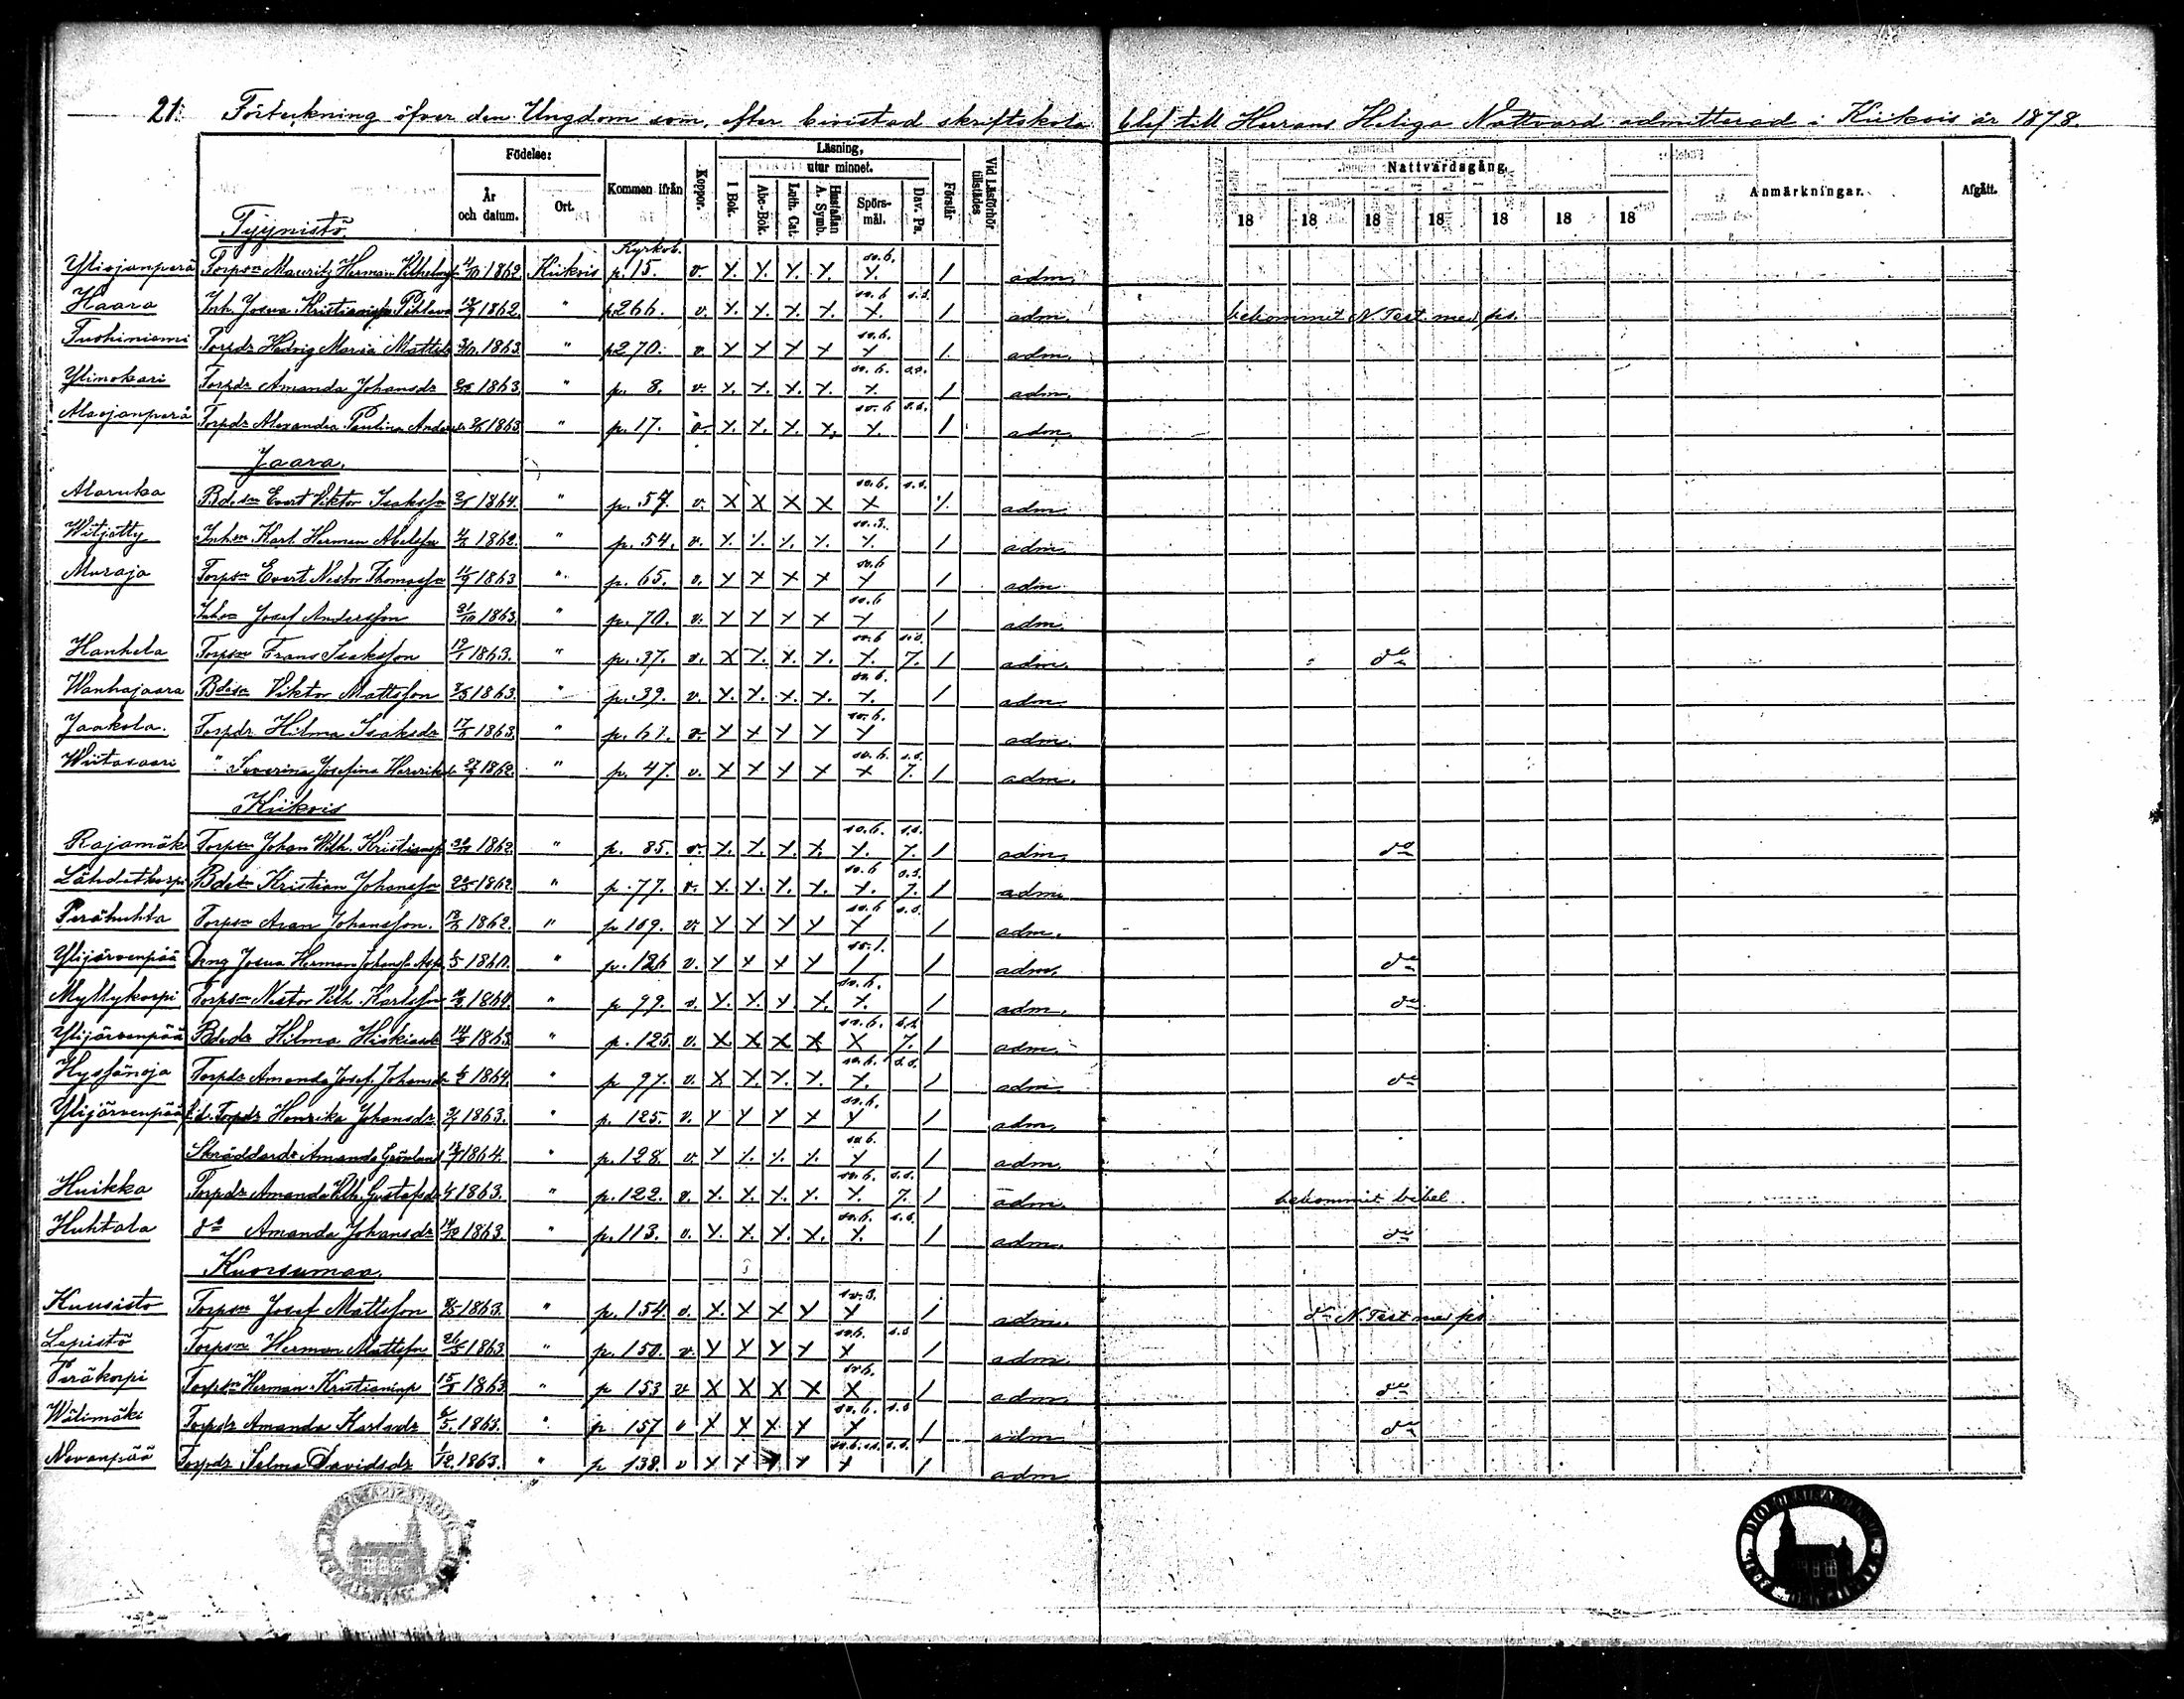 21. Förteckning öfver den Ungdom som, efter bevistad skriftskola blef till Herrans Heliga Nattvard admitterad i Kiikois år 1878.
Födelse: Läsning, Nattvardsgång.
Kommen ifrån Koppor. utur minnet. Förstår Vid Läsförhör tillstädes Anmärkningar. Afgått.
År och datum. Ort. I Bok. Abc-Bok. Luth. Cat. Hustaflan A. Symb. Spörsmål. Dav. Ps. 18 18 18 18 18 18 18
Tyynistö Kyrkob.
Yliojanperä Torpsn Mauritz Herman Vilhelmss 1862. Kiikois p. 15. v. x. x. x. x. sv. 6. x. / adm.
Haara Inh. Josua Kristiansson Pihlava 1862. " p 266. v. x. x. x. x. sv. 6 s.s. x. / adm. bekommit N. Test. med ps.
Tuohiniemi Torpdr Hedvig Maria Mattsdr 1863. " p 270. v. x x x x sv. 6. x / adm.
Ylinokari Torpdr Amanda Johansdr 1863. " p. 8. v. x. x. x. x. sv. 6. s.s. x. / adm.
Alaojanperä Torpdr Alexandra Paulina Andersdr 1863 " p. 17. v. x. x. x. x. sv. 6 s.s. x. / adm.
Jaara.
Alaruka Bdesn Evert Viktor Isaksson 1864. " p. 57. v. x x x x sv. 6. s.s. x / adm
Witjätty Inhsn Karl Herman Abelsson 1862. " p. 54. v. x. x. x. x. sv. 3. x. / adm.
Muraja Torpsn Evert Nestor Thomasson 11/9 1863 " p. 65. v. x x x x sv. 6 x / adm.
Inhsn Josef Andersson 31/10 1863. " p. 70. v. x x x x sv. 6 x / adm.
Hanhela Torpsn Frans Isaksson 19/1 1863. " p. 37. v. x x. x. x. sv. 6 s.s. x. 7. / adm. do
Wanhajaara Bdesn Viktor Mattsson 1863. " p. 39. v. x. x. x. x. sv. 6. x. / adm
Jaakola. Torpdr Hilma Isaksdr 1863. " p. 61. v. x x x x sv. 6. x adm.
Wiitasaari " Severina Josefina Henriksdr 1862. " p. 47. v. x x x x sv. 6. s.s. x 7. / adm.
Kiikois
Rajamäk Torpsn Johan Wilh. Kristianss 1862. " p. 85. v. x. x. x. x. sv. 6. s.s. x. 7. / adm. do
Lähdetkorpi Bdesn Kristian Johansson 1862. " p. 77. v. x. x. x. x. sv. 6 s.s. x. 7. / adm.
Perähuhta Torpsn Aran Johansson. 1862. " p 109. v. x x x x sv. 6 s.s. x / adm.
Ylijärvenpää Dreng Josua Herman Johansson 1860. " p. 126 v. x x x x sv. 1. / / adm. do
Myllykorpi Torpsn Nestor Vilh. Karlsson 1864. " p. 99. v. x. x. x x. sv. 6. x. / adm. do
Ylijärvenpää Bdedr Hilma Hiskiasdr 1863. " p. 125. v. x x x x sv. 6. s.s. x 7. / adm.
Hyssänoja Torpdr Amanda Josef. Johansdr 1864. " p 97. v. x x x. x. sv. 6. s.s. x. / adm. do
Ylijärvenpää f.d. Torpdr Henrika Johansdr 1863. " p. 125. v. x x x x sv. 6. x / adm.
Skräddardr Amanda Grönlund 1864. " p. 128. v. x x. x. x. sv 6. x / adm.
Huikka Torpdr Amanda Vilh. Gustafsdr 1863. " p. 122. v. x. x. x. x. sv. 6. s.s. x. 7. / adm. bekommit bibel.
Huhtala do Amanda Johansdr 14/12 1863. " p. 113. v. x. x. x. x. sv. 6. s.s. x. / adm. do
Kuorsumaa.
Kuusisto Torpsn Josef Mattsson 1863. " p. 154. v. x. x x x sv. 3. x / adm. do N. Test med ps
Lepistö Torpsn Herman Mattsson 1863. " p. 150. v. x x x x sv. 6. s.s x / adm.
Peräkorpi Torpsn Herman Kristianss 1863 " p 153 v x x x x sv. 6. x / adm. do
Wälimäki Torpdr Amanda Karlsdr 6/5 1863. " p 157 v x x x x sv. 6. s.s x / adm do
Nevanpää Torpdr Selma Davidsdr 1/12 1863. " p 138. v x x x x sv. 6. s.s. x / adm